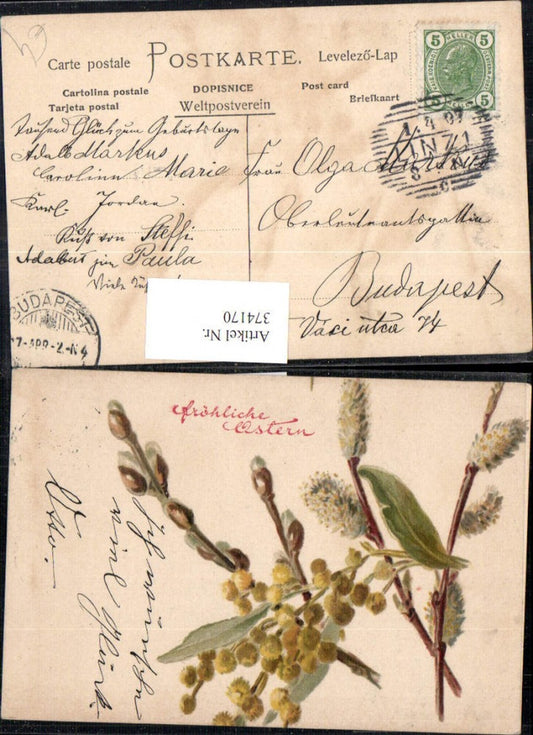 Carte postale POSTKARTE. Levelező-Lap
Cartolina postale DOPISNICE Post card
Tarjeta postal Weltpostverein Briefkaart
5 HELLER 5
5 5
Tausend Glück zum Geburtstage
Adele Markus
Caroline Marie
Karl Jordan
Kuß von Steffi
Adalbert jun Paula
Viele
Frau Olga Markus
Oberleutnantsgattin
Budapest
Váci utca 74
LINZ 1
BUDAPEST
Artikel Nr.
374170
Fröhliche
Ostern
Ich wünsche
viel Glück.
Otto.